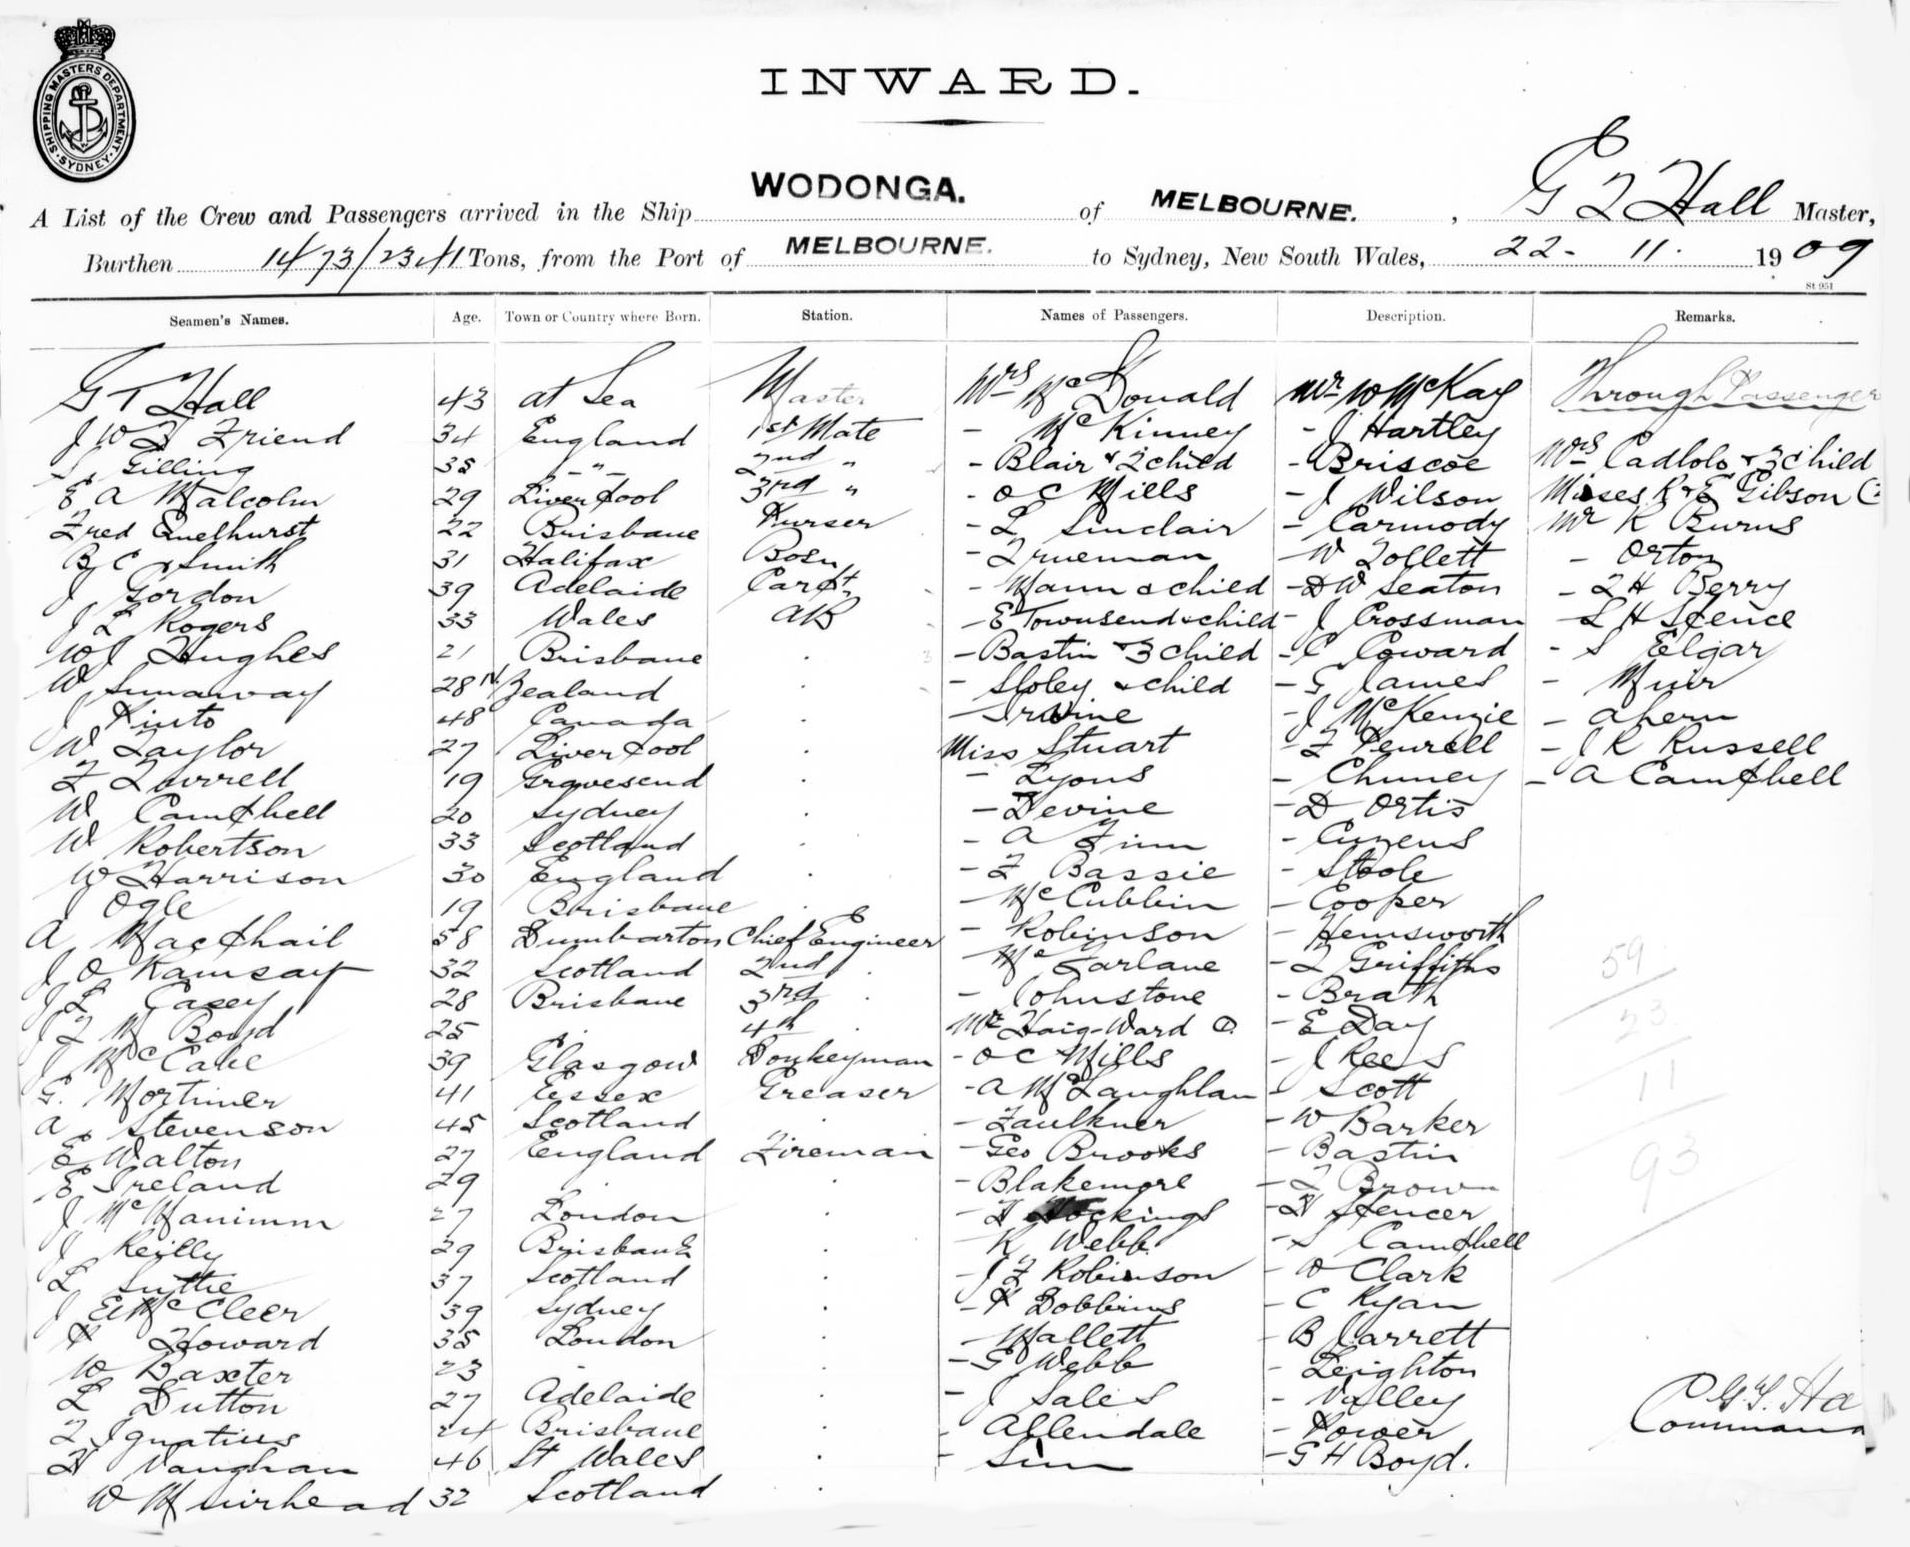 SHIPPING MASTERS DEPARTMENT
SYDNEY
INWARD.
A List of the Crew and Passengers arrived in the Ship WODONGA. of MELBOURNE. , G T Hall Master,
Burthen 1473/2341 Tons, from the Port of MELBOURNE. to Sydney, New South Wales, 22- 11. 1909
St 951
Seamen's Names. Age. Town or Country where Born. Station. Names of Passengers. Description. Remarks.
G T Hall 43 at Sea Master Mrs McDonald Mr W McKay Through Passenger
J W F Friend 34 England 1st Mate - McKinney - J Hartley
Gilling 35 - " - 2nd " - Blair & 2 child - Briscoe Mrs & 3 child
E A Malcolm 29 Liverpool 3rd " - O C Mills - J Wilson Misses K & E Gibson
Fred 22 Brisbane Purser - L Sinclair - Carmody Mr K Burns
B C Smith 31 Halifax Bosn - Trueman - W Tollett - Orton
J Gordon 39 Adelaide Carpt. - Mann & child - D W Seaton - T H Berry
J L Rogers 33 Wales AB - E Townsend & child - J Crossman - L H Spence
W J Hughes 21 Brisbane . - Bastin & 3 child - C Coward - S Elgar
W 28 N. Zealand . - Sloley & child - G James - Muir
J Pinto 48 Canada . - Irvine - J McKenzie - Ahern
W Taylor 27 Liverpool . Miss Stuart - F Pewrell - J R Russell
F Turrell 19 Gravesend . - Lyons - - A Campbell
W Campbell 20 Sydney . - Devine - D Ortis
W Robertson 33 Scotland . - A Finn - Cuzens
W Harrison 30 England . - F Bassie - Stoole
J Ogle 19 Brisbane . - McCubbin - Cooper
A Macphail 58 Dumbarton Chief Engineer - Robinson - Hemsworth
J O Ramsay 32 Scotland 2nd . - McFarlane - T Griffiths 59
J L Casey 28 Brisbane 3rd . - Johnstone - Brath
J T M Boyd 25 . 4th . Mr Haig-Ward - E Day 23
J McCabe 39 Glasgow Donkeyman - O C Mills - J Rees
G. Mortimer 41 Essex Greaser - A McLaughlan - Scott 11
A Stevenson 45 Scotland . - Faulkner - W Barker
E Walton 27 England Fireman - Geo Brooks - Bastin 93
E Ireland 29 . . - Blakemore - T Brown
J 27 London . - Hockings - H Spencer
J Reilly 29 Brisbane . - K Webb - S Campbell
L Suttie 37 Scotland . - J F Robinson - O Clark
J McCleer 39 Sydney . - H Dobbins - C Ryan
H Howard 35 London . - Mallett - B Jarrett
W Baxter 23 - . - G Webb - Leighton
L Dutton 27 Adelaide . - J Sales - Valley G. T. Ha
F Ignatius 24 Brisbane . - Allendale - Power Command
H Vaughan 46 St Wales . - Sim - G H Boyd.
W Muirhead 32 Scotland .